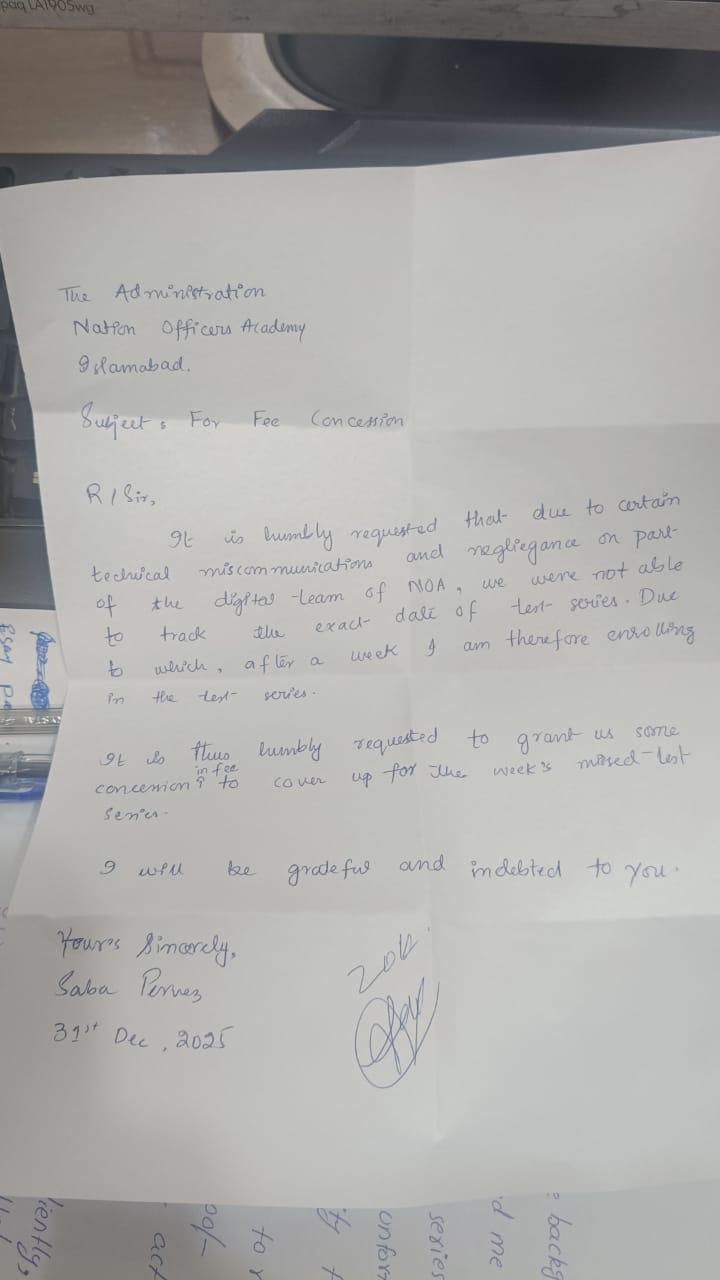 paq LA1905wg
The Administration
Nation Officers Academy
Islamabad.
Subject: For Fee Concession
R/Sir,
It is humbly requested that due to certain
technical miscommunications and negliegance on part
of the digital team of NOA, we were not able
to track the exact date of test series. Due
to which, after a week I am therefore enrolling
in the test series.
It is thus humbly requested to grant us some
concession in fee to cover up for the week's missed-test
series.
I will be grateful and indebted to you.
Your's Sincerely,
Saba Pervez
31st Dec, 2025
20k
: backg
d me
series
unfor
ity
to
act
iently,